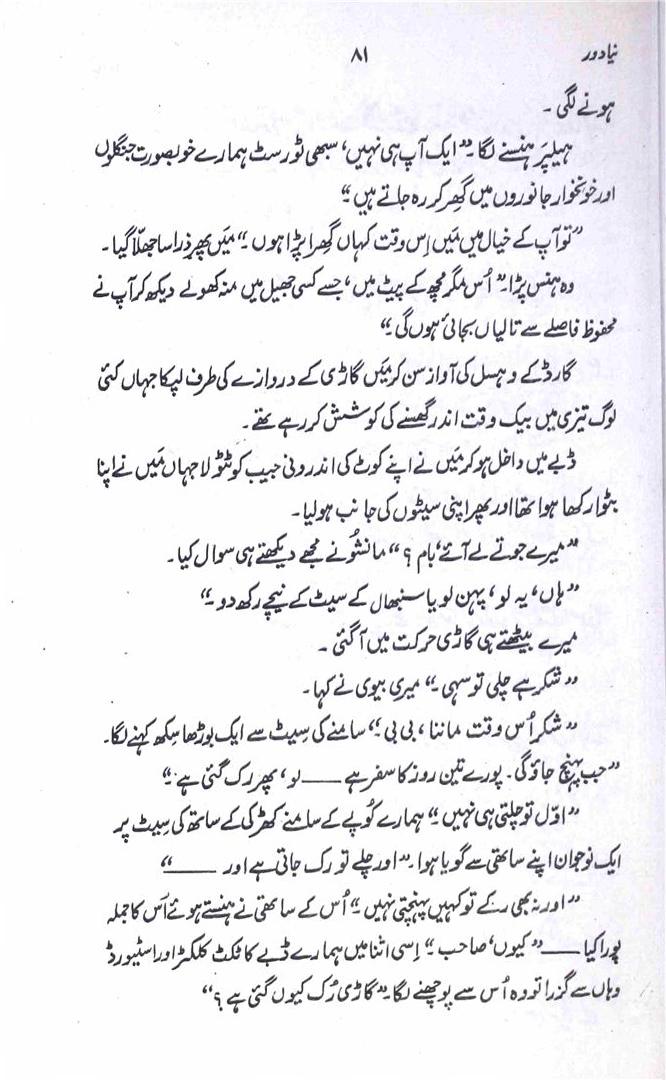 نیا دور ۸۱
ہونے لگی ۔
ہیلپر ہنسنے لگا ۔” ایک آپ ہی نہیں، سبھی ٹورسٹ ہمارے خوبصورت جنگلوں
اور خونخوار جانوروں میں گھِر کر رہ جاتے ہیں ۔“
”تو آپ کے خیال میں مَیں اِس وقت کہاں گھِرا پڑا ہوں ۔“ مَیں پھر ذرا سا جھلّا گیا ۔
وہ ہنس پڑا۔” اُس مگرمچھ کے پیٹ میں، جسے کسی جھیل میں منہ کھولے دیکھ کر آپ نے
محفوظ فاصلے سے تالیاں بجائی ہوں گی ۔“
گارڈ کے وہسل کی آواز سن کر مَیں گاڑی کے دروازے کی طرف لپکا جہاں کئی
لوگ تیزی میں بیک وقت اندر گھسنے کی کوشش کر رہے تھے ۔
ڈبے میں داخل ہو کر مَیں نے اپنے کوٹ کی اندرونی جیب کو ٹٹولا جہاں مَیں نے اپنا
بٹوا رکھا ہوا تھا اور پھر اپنی سیٹوں کی جانب ہو لیا ۔
”میرے جوتے لے آئے، بام ؟“ مانشُو نے مجھے دیکھتے ہی سوال کیا ۔
”ہاں، یہ لو، پہن لو یا سنبھال کے سیٹ کے نیچے رکھ دو ۔“
میرے بیٹھتے ہی گاڑی حرکت میں آ گئی ۔
”شکر ہے چلی تو سہی ۔“ میری بیوی نے کہا ۔
”شکر اُس وقت ماننا، بی بی ۔“ سامنے کی سیٹ سے ایک بوڑھا سِکھ کہنے لگا۔
”جب پہنچ جاؤ گی ۔ پورے تین روز کا سفر ہے —— لو، پھر رک گئی ہے ۔“
”اوّل تو چلتی ہی نہیں ۔“ ہمارے کُوپے کے سامنے کھڑکی کے ساتھ کی سیٹ پر
ایک نوجوان اپنے ساتھی سے گویا ہوا ۔” اور چلے تو رک جاتی ہے اور ——“
”اور نہ بھی رکے تو کہیں پہنچتی نہیں ۔“ اُس کے ساتھی نے ہنستے ہوئے اُس کا جملہ
پورا کیا —— ”کیوں، صاحب ۔“ اِسی اثنا میں ہمارے ڈبے کا ٹکٹ کلکٹر اور اسٹیورڈ
وہاں سے گزرا تو وہ اُس سے پوچھنے لگا ۔” گاڑی رُک کیوں گئی ہے ؟“